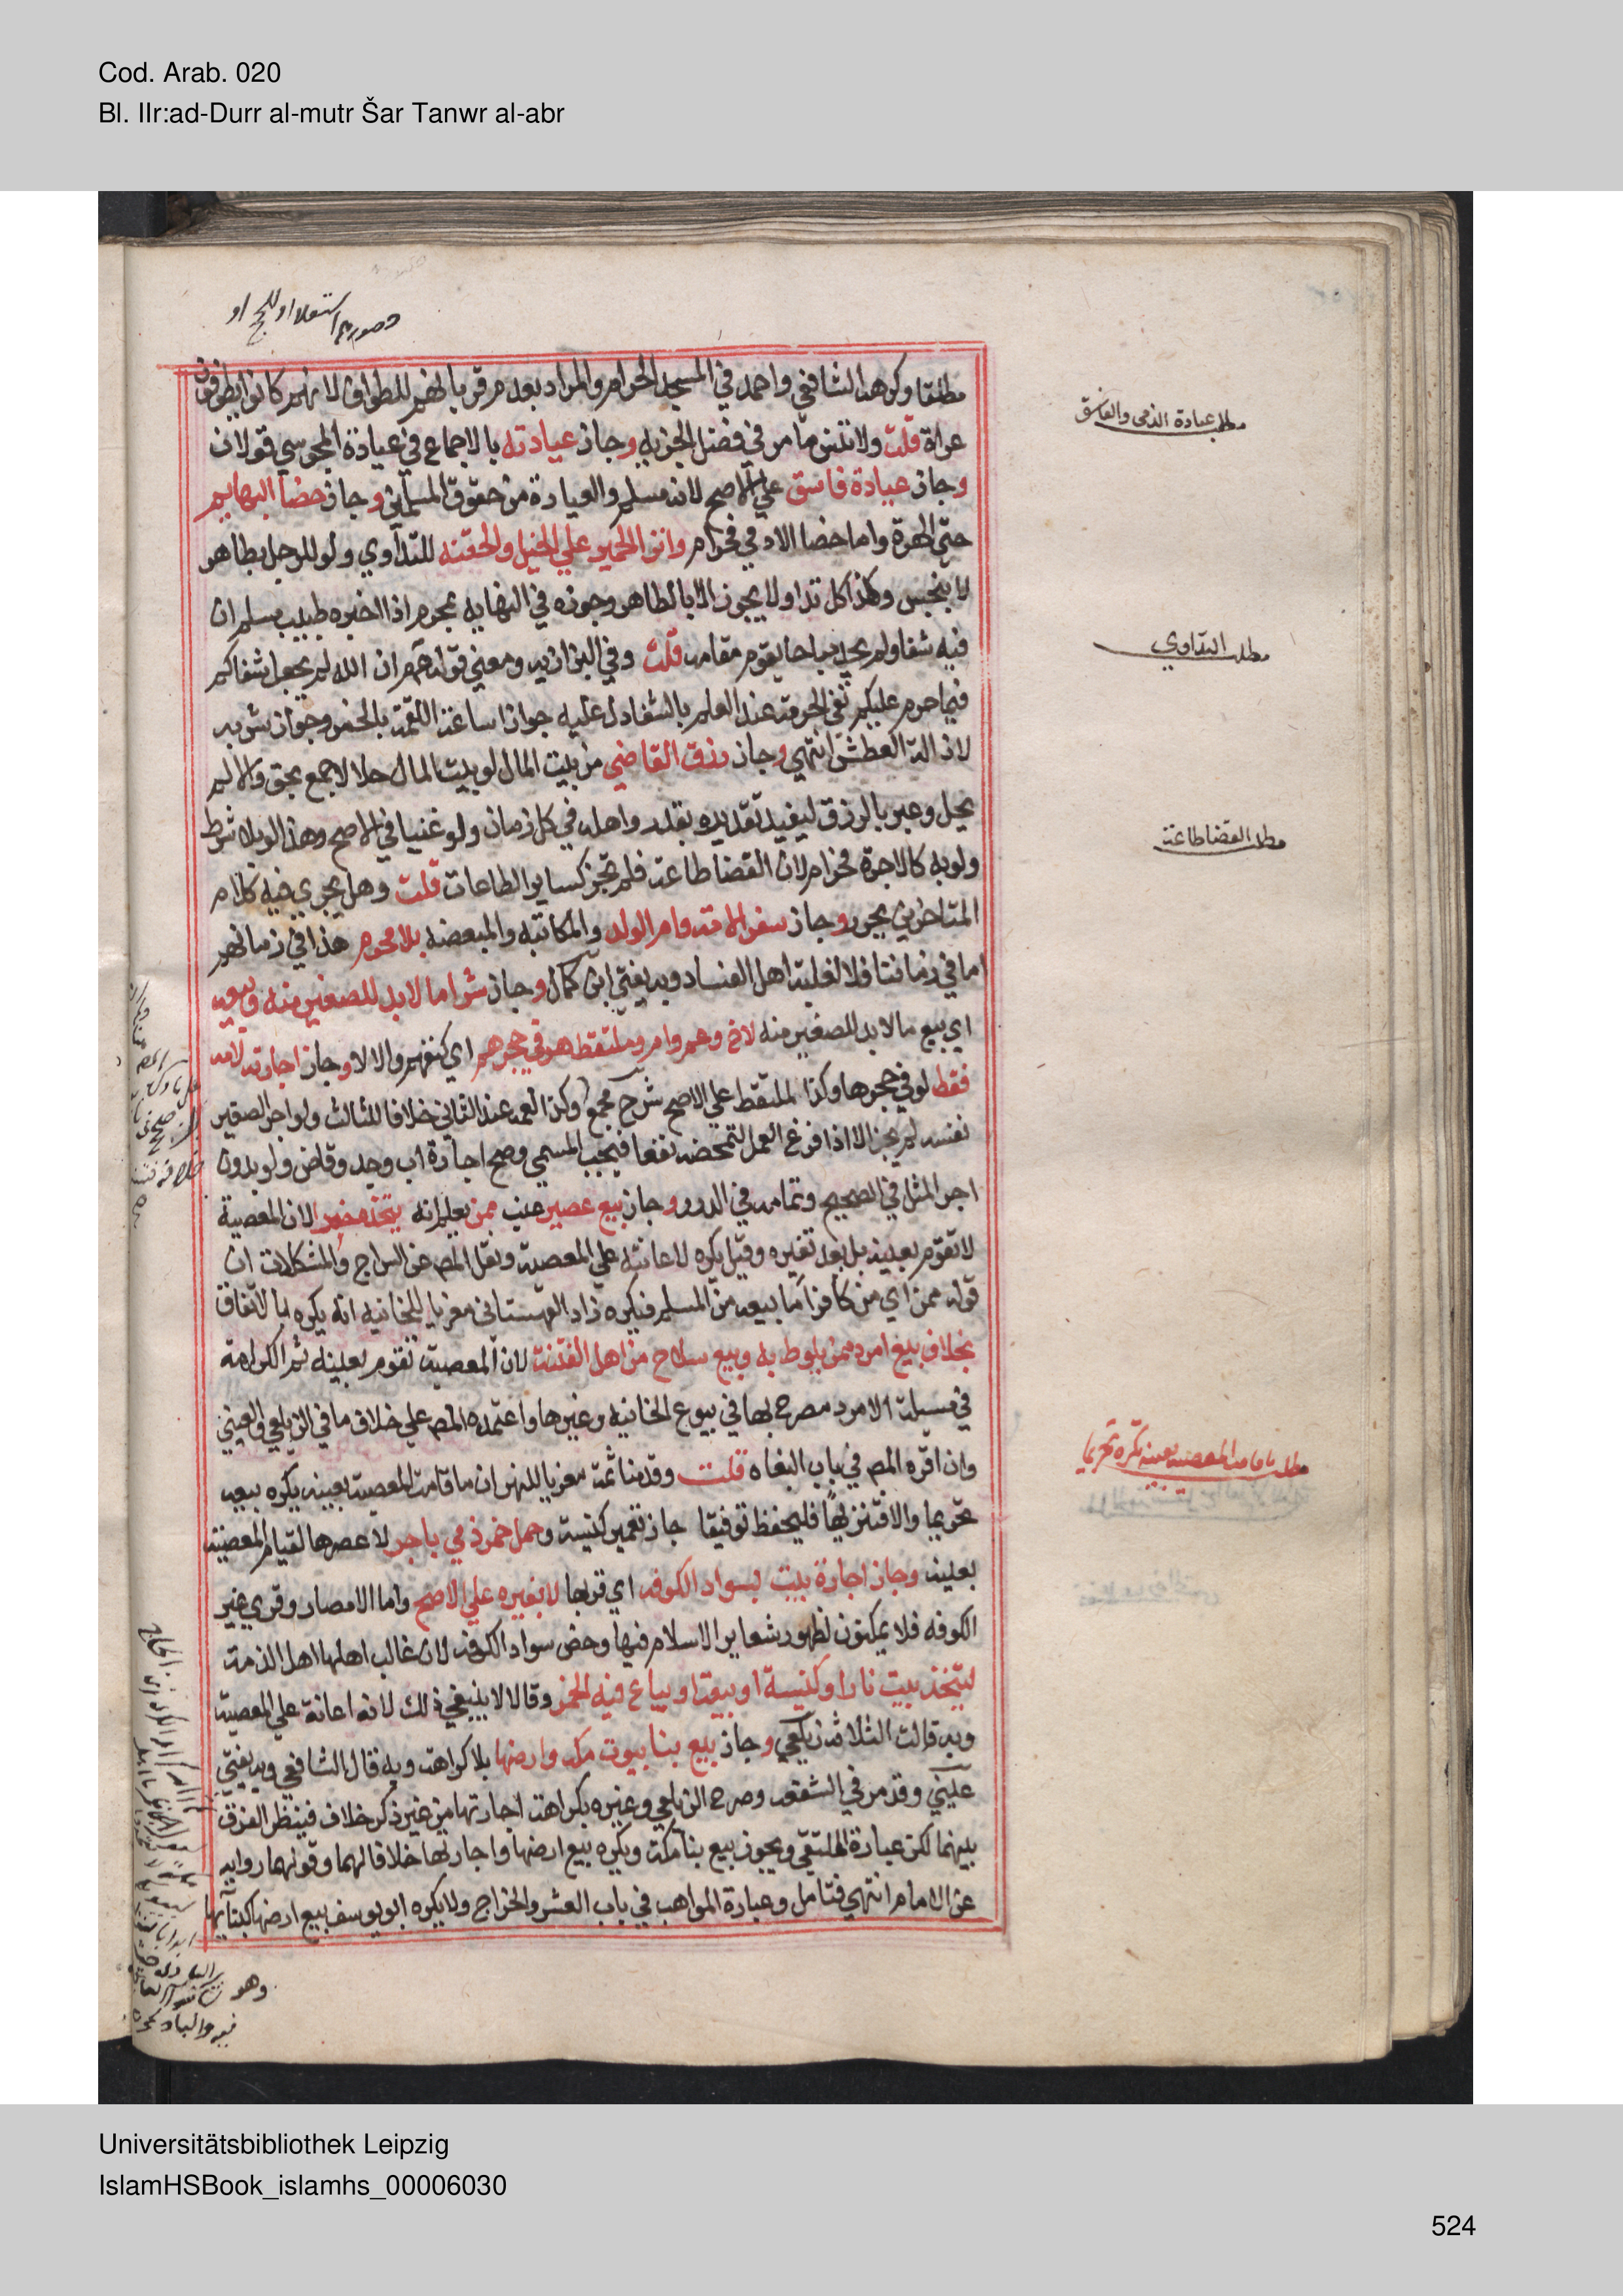 Cod. Arab. 020
Bl. IIr:ad-Durr al-mutr Šar Tanwr al-abr
مطلقا وكرهه الشافعي واحمد في المسجد الحرام والمراد بعدم قربانهم للطواف لانهم كانوا يطوفون
عراة قلت ولا تنس ما مر في فصل الجزيه وجاز عيادته بالاجماع في عيادة المجوسي قولان
وجاز عيادة فاسق علي الاصح لانه مسلم والعيادة من حقوق المسلمين وجاز خصا البهايم
حتى الهرة واما خصا الادمي فحرام وانزا الحمير علي الخيل والحقنه للتداوي ولو للرجل بطاهر
لا بنجس وكذا كل تداو لا يجوز الا بالطاهر وجوزه في النهايه بمحرم اذا اخبره طبيب مسلم ان
فيه شفا ولم يجد مباحا يقوم مقامه قلت وفي البزازيه ومعني قولهم ان الله لم يجعل شفاكم
فيما حرم عليكم نفي الحرمة عند العلم بالشفا دل عليه جواز اساغة اللقمة بالخمر وجواز شربه
لازالة العطش انتهي وجاز رزق القاضي من بيت المال لو بيت المال حلالا جمع بحق والا لم
يحل وعبر بالرزق ليفيد تقديره بقدر واهله في كل زمان ولو غنيا في الاصح وهذا لو بلا شرط
ولو به كالاجرة فحرام لان القضا طاعة فلم تجز كساير الطاعات قلت وهل يجري فيه كلام
المتاخرين يحرر وجاز سفر الامة وام الولد والمكاتبه والمبعضه بلا محرم هذا في زمانهم
اما في زماننا فلا لغلبة اهل الفساد وبه يفتي ابن كمال وجاز شرا ما لا بد للصغير منه وبيعه
اي بيع ما لا بد للصغير منه لاخ وعم وام وملتقط هو في حجرهم اي كنفهم والا لا وجاز اجارته لامه
فقط لو في حجرها وكذا لملتقط علي الاصح شرح مجمع وكذا لعمه عند الثاني خلافا للثالث ولو اجر الصغير
نفسه لم يجز الا اذا فرغ العمل لتمحضه نفعا فيجب المسمي وصح اجارة اب وجد وقاض ولو بدون
اجر المثل في الصحيح وتمامه في الدرر وجاز بيع عصير عنب ممن يعلم انه يتخذه خمرا لان المعصية
لا تقوم بعينه بل بعد تغيره وقيل يكره لاعانته علي المعصية ونقل المص عن السراج والمشكلات ان
قوله ممن اي من كافر اما بيعه من المسلم فيكره زاد القهستاني معزيا للخانيه انه يكره بالاتفاق
بخلاف بيع امرد ممن يلوط به وبيع سلاح من اهل الفتنة لان المعصية تقوم بعينه ثم الكراهة
في مسيلة الامرد مصرح بها في بيوع الخانيه وغيرها واعتمده المص علي خلاف ما في الزيلعي والعيني
وان اقره المص في باب البغاه قلت وقدمنا ثمة معزيا للنهر ان ما قامت المعصية بعينه يكره بيعه
تحريما والا فتنزيها فليحفظ توفيقا جاز تعمير كنيسة وحمل خمر ذمي باجر لا عصرها لقيام المعصية
بعينه وجاز اجارة بيت بسواد الكوفه اي قراها لا بغيره علي الاصح واما الامصار وقري غير
الكوفه فلا يمكنون لظهور شعاير الاسلام فيها وخص سواد الكوفه لان غالب اهلها اهل الذمة
ليتخذ بيت نار او كنيسة او بيعة او يباع فيه الخمر وقالا لا ينبغي ذلك لانه اعانة علي المعصية
وبه قالت الثلاثة زيلعي وجاز بيع بنا بيوت مكه وارضها بلا كراهة وبه قال الشافعي وبه يفتي
عيني وقد مر في الشفعه وصرح الزيلعي وغيره بكراهة اجارتها من غير ذكر خلاف فينظر الفرق
بينهما لكن عبارة الملتقي ويجوز بيع بنا مكة ويكره بيع ارضها واجارتها خلافا لهما وقولهما روايه
عن الامام انتهي فتامل وعبارة المواهب في باب العشر والخراج ولا يكره ابو يوسف بيع ارضها كبنايها
مطلب عيادة الذمى والفاسق
مطلب التداوي
مطلب القضا طاعة
مطلب ما قامت المعصية بعينه يكره تحريما
Universitätsbibliothek Leipzig
IslamHSBook_islamhs_00006030
524